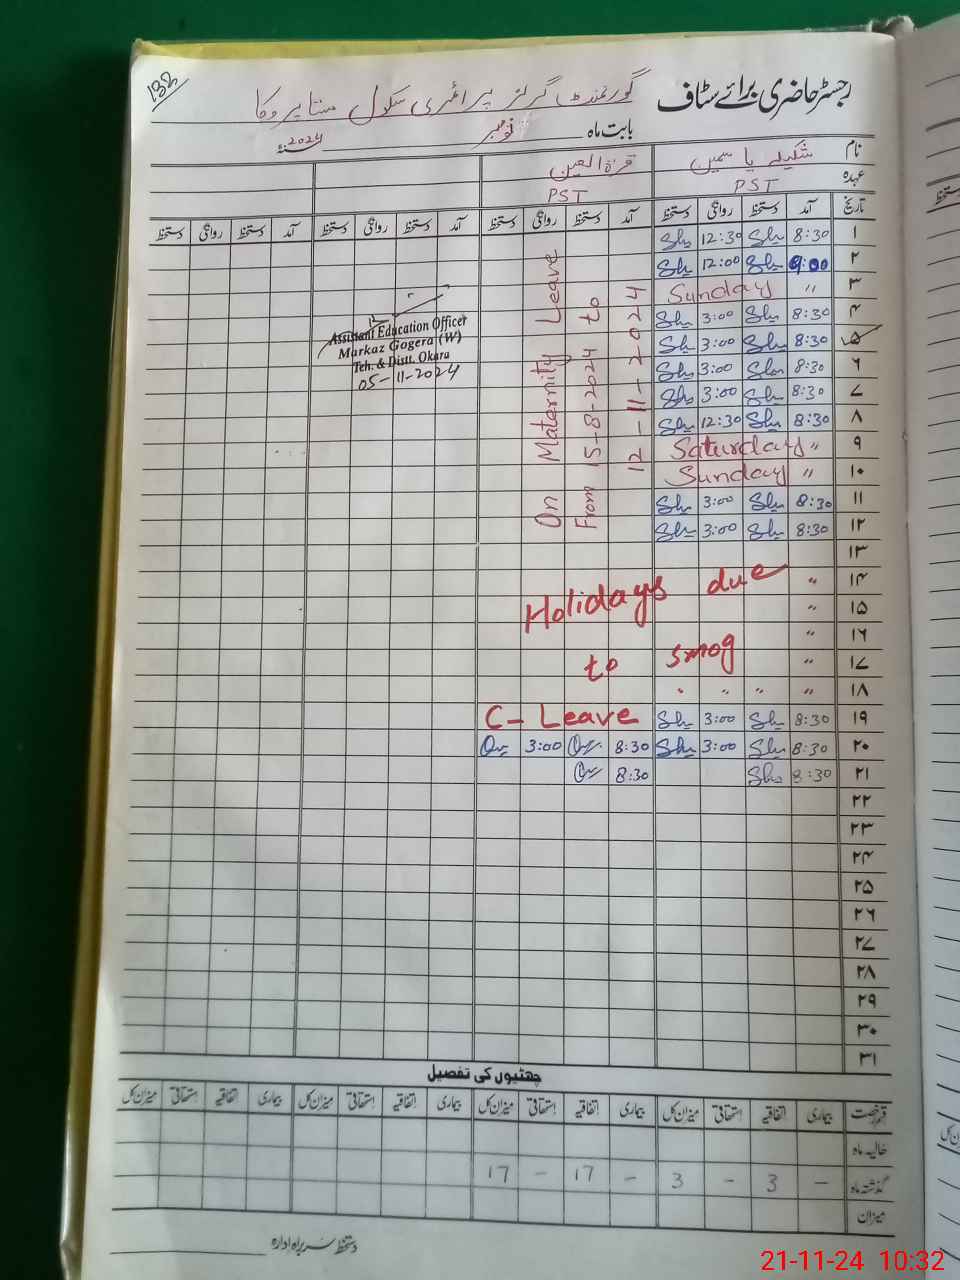 132
رجسٹر حاضری برائے سٹاف
گورنمنٹ گرلز پرائمری سکول
بابت ماہ نومبر 2024
نام شکیلہ یاسمین قرۃ العین
عہدہ PST PST
تاریخ آمد دستخط روانگی دستخط آمد دستخط روانگی دستخط آمد دستخط روانگی دستخط آمد دستخط روانگی دستخط
۱ 8:30 12:30
۲ 9:00 12:00
۳ " Sunday
۴ 8:30 3:00
۵ 8:30 3:00
۶ 8:30 3:00
۷ 8:30 3:00
۸ 8:30 12:30
۹ " Saturday
۱۰ " Sunday
۱۱ 8:30 3:00
۱۲ 8:30 3:00
On Maternity Leave
From 15-8-2024 to
12-11-2024
Assistant Education Officer
Markaz Gogera (W)
Teh. & Distt. Okara
05-11-2024
۱۳
۱۴ "
Holidays due
۱۵ "
۱۶ "
to smog
۱۷ "
۱۸ " " " "
۱۹ 8:30 3:00 C- Leave
۲۰ 8:30 3:00 8:30 3:00
۲۱ 8:30 8:30
۲۲
۲۳
۲۴
۲۵
۲۶
۲۷
۲۸
۲۹
۳۰
۳۱
چھٹیوں کی تفصیل
قسم رخصت بیماری اتفاقیہ استحقاقی میزان کل بیماری اتفاقیہ استحقاقی میزان کل بیماری اتفاقیہ استحقاقی میزان کل بیماری اتفاقیہ استحقاقی میزان کل
حالیہ ماہ
گذشتہ ماہ - 3 - 3 - 17 - 17
میزان
دستخط سربراہ ادارہ
21-11-24 10:32